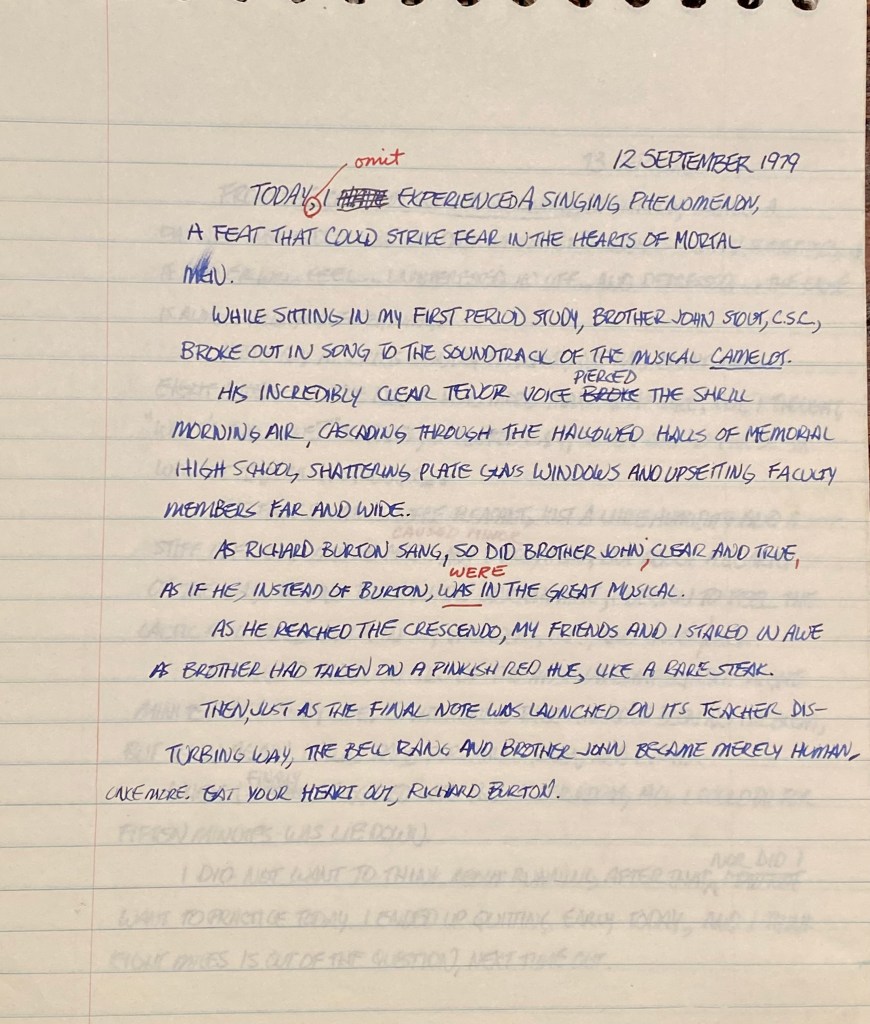 omit
12 SEPTEMBER 1979
TODAY, I EXPERIENCED A SINGING PHENOMENON,
A FEAT THAT COULD STRIKE FEAR IN THE HEARTS OF MORTAL
MEN.
WHILE SITTING IN MY FIRST PERIOD STUDY, BROTHER JOHN STOUT, C.S.C.,
BROKE OUT IN SONG TO THE SOUNDTRACK OF THE MUSICAL CAMELOT.
PIERCED
HIS INCREDIBLY CLEAR TENOR VOICE BROKE THE SHRILL
MORNING AIR, CASCADING THROUGH THE HALLOWED HALLS OF MEMORIAL
HIGH SCHOOL, SHATTERING PLATE GLASS WINDOWS AND UPSETTING FACULTY
MEMBERS FAR AND WIDE.
AS RICHARD BURTON SANG, SO DID BROTHER JOHN, CLEAR AND TRUE,
WERE
AS IF HE, INSTEAD OF BURTON, WAS IN THE GREAT MUSICAL.
AS HE REACHED THE CRESCENDO, MY FRIENDS AND I STARED IN AWE
AS BROTHER HAD TAKEN ON A PINKISH RED HUE, LIKE A RARE STEAK.
THEN, JUST AS THE FINAL NOTE WAS LAUNCHED ON ITS TEACHER DIS-
TURBING WAY, THE BELL RANG AND BROTHER JOHN BECAME MERELY HUMAN,
ONCE MORE. EAT YOUR HEART OUT, RICHARD BURTON.